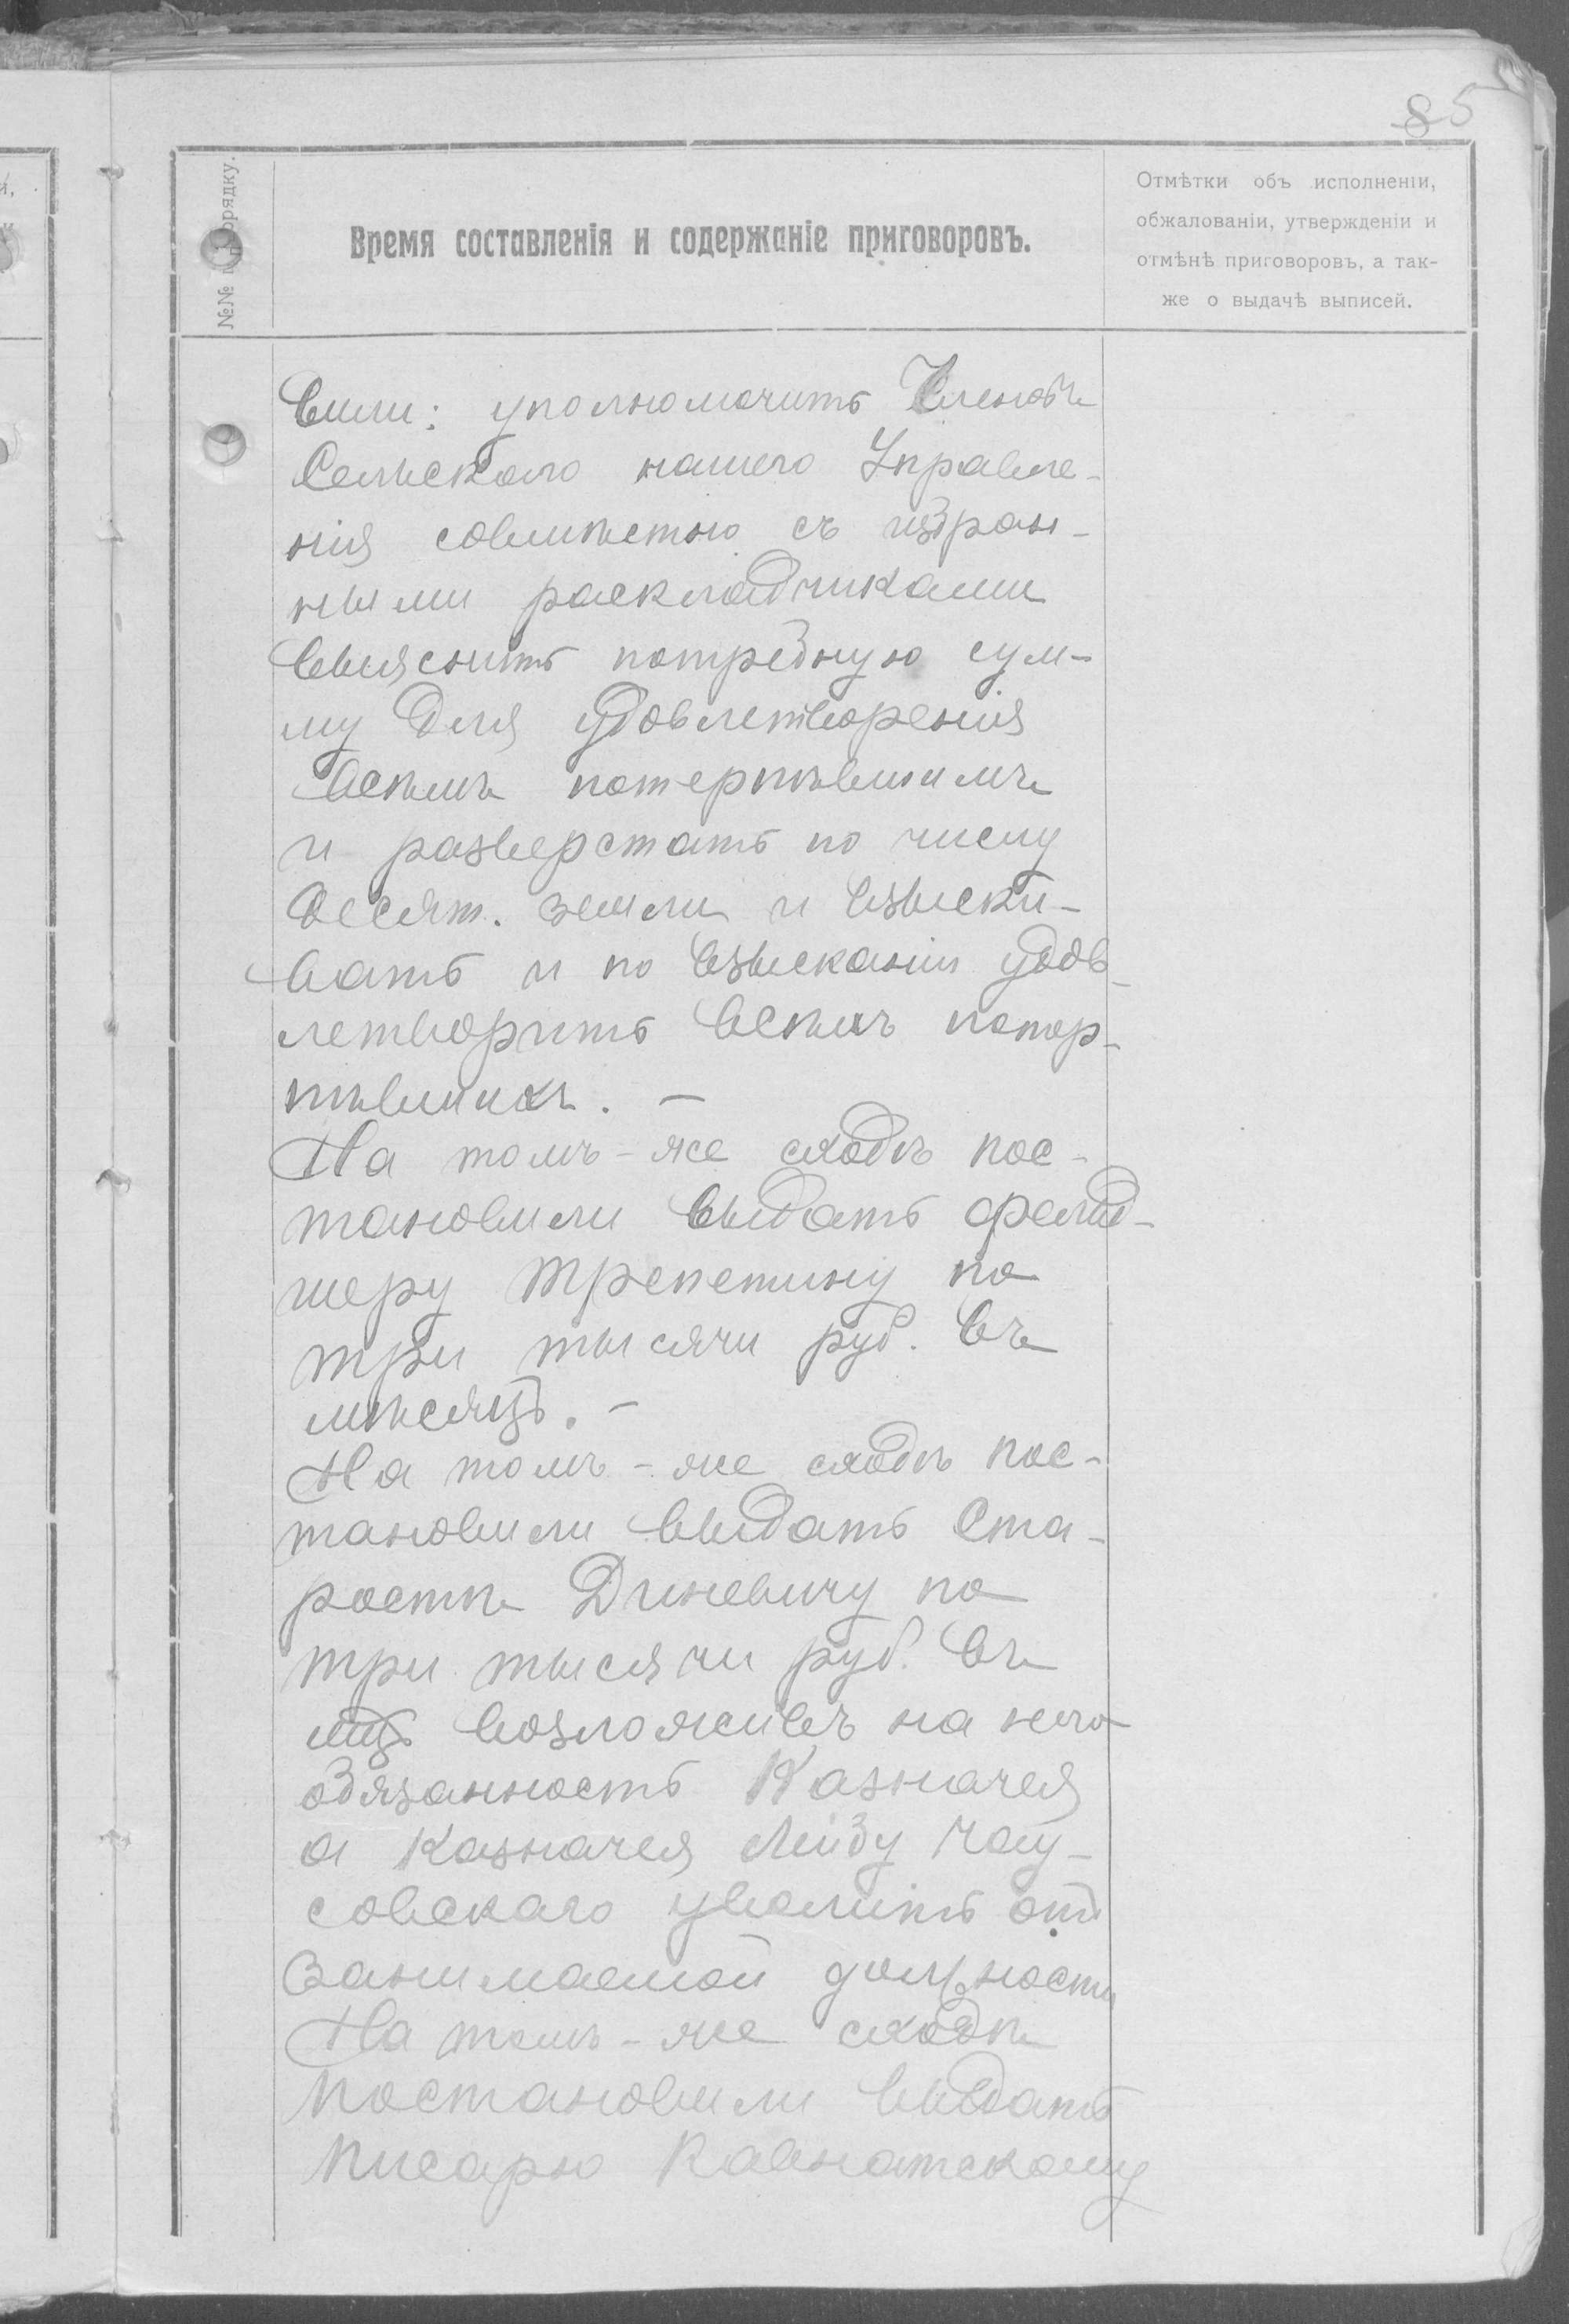 85
№№ по порядку.
Время составленія и содержаніе приговоровъ.
Отмѣтки объ исполненіи,
обжалованіи, утвержденіи и
отмѣнѣ приговоровъ, а так-
же о выдачѣ выписей.
вили: уполномочить Членовъ
Сельскаго нашего Управле-
нія совмѣстно съ избран-
ными раскладчиками
выяснить потребную сум-
му для удовлетворенія
всѣмъ потерпѣвшимъ
и разверстать по числу
десят. земли и взыски-
вать и по взысканіи удов-
летворить всѣхъ потер-
пѣвшихъ. —
На томъ-же сходѣ пос-
тановили выдать фельд-
шеру Трепетину по
три тысячи руб. въ
мѣсяцъ. —
На томъ-же сходѣ пос-
тановили выдать Ста-
ростѣ Диневичу по
три тысячи руб. въ
мцъ возложивъ на него
обязанность Казначея
а Казначея Лейбу Чау-
совскаго уволить отъ
занимаемой должности
На томъ-же сходѣ
постановили выдать
писарю Кавнатскому